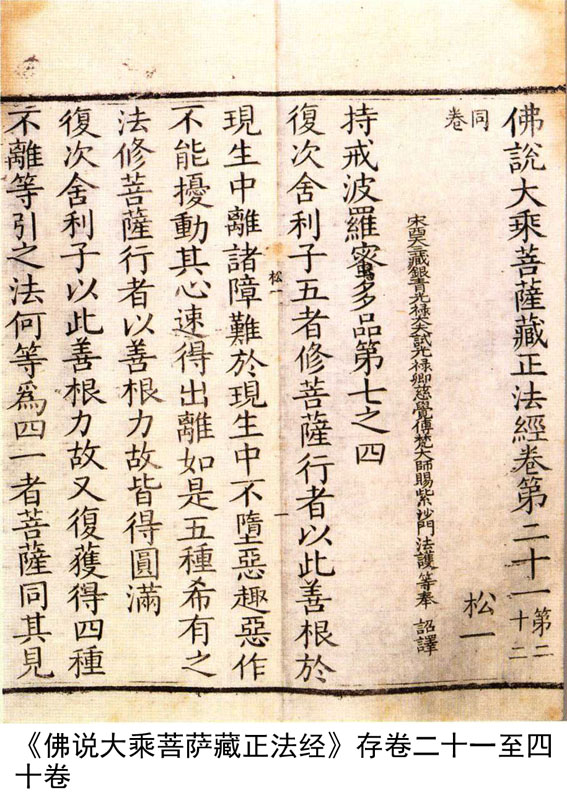 佛說大乘菩薩藏正法經卷第二十一 第二十二
同卷 松一
宋西天三藏銀青光祿大夫試光祿卿慈覺傳梵大師賜紫沙門法護等奉 詔譯
持戒波羅蜜多品第七之四
復次舍利子五者修菩薩行者以此善根於
松一 一
現生中離諸障難於現生中不墮惡趣惡作
不能擾動其心速得出離如是五種希有之
法修菩薩行者以善根力故皆得圓滿
復次舍利子以此善根力故又復獲得四種
不離等引之法何等爲四一者菩薩同其見
《佛说大乘菩萨藏正法经》存卷二十一至四
十卷